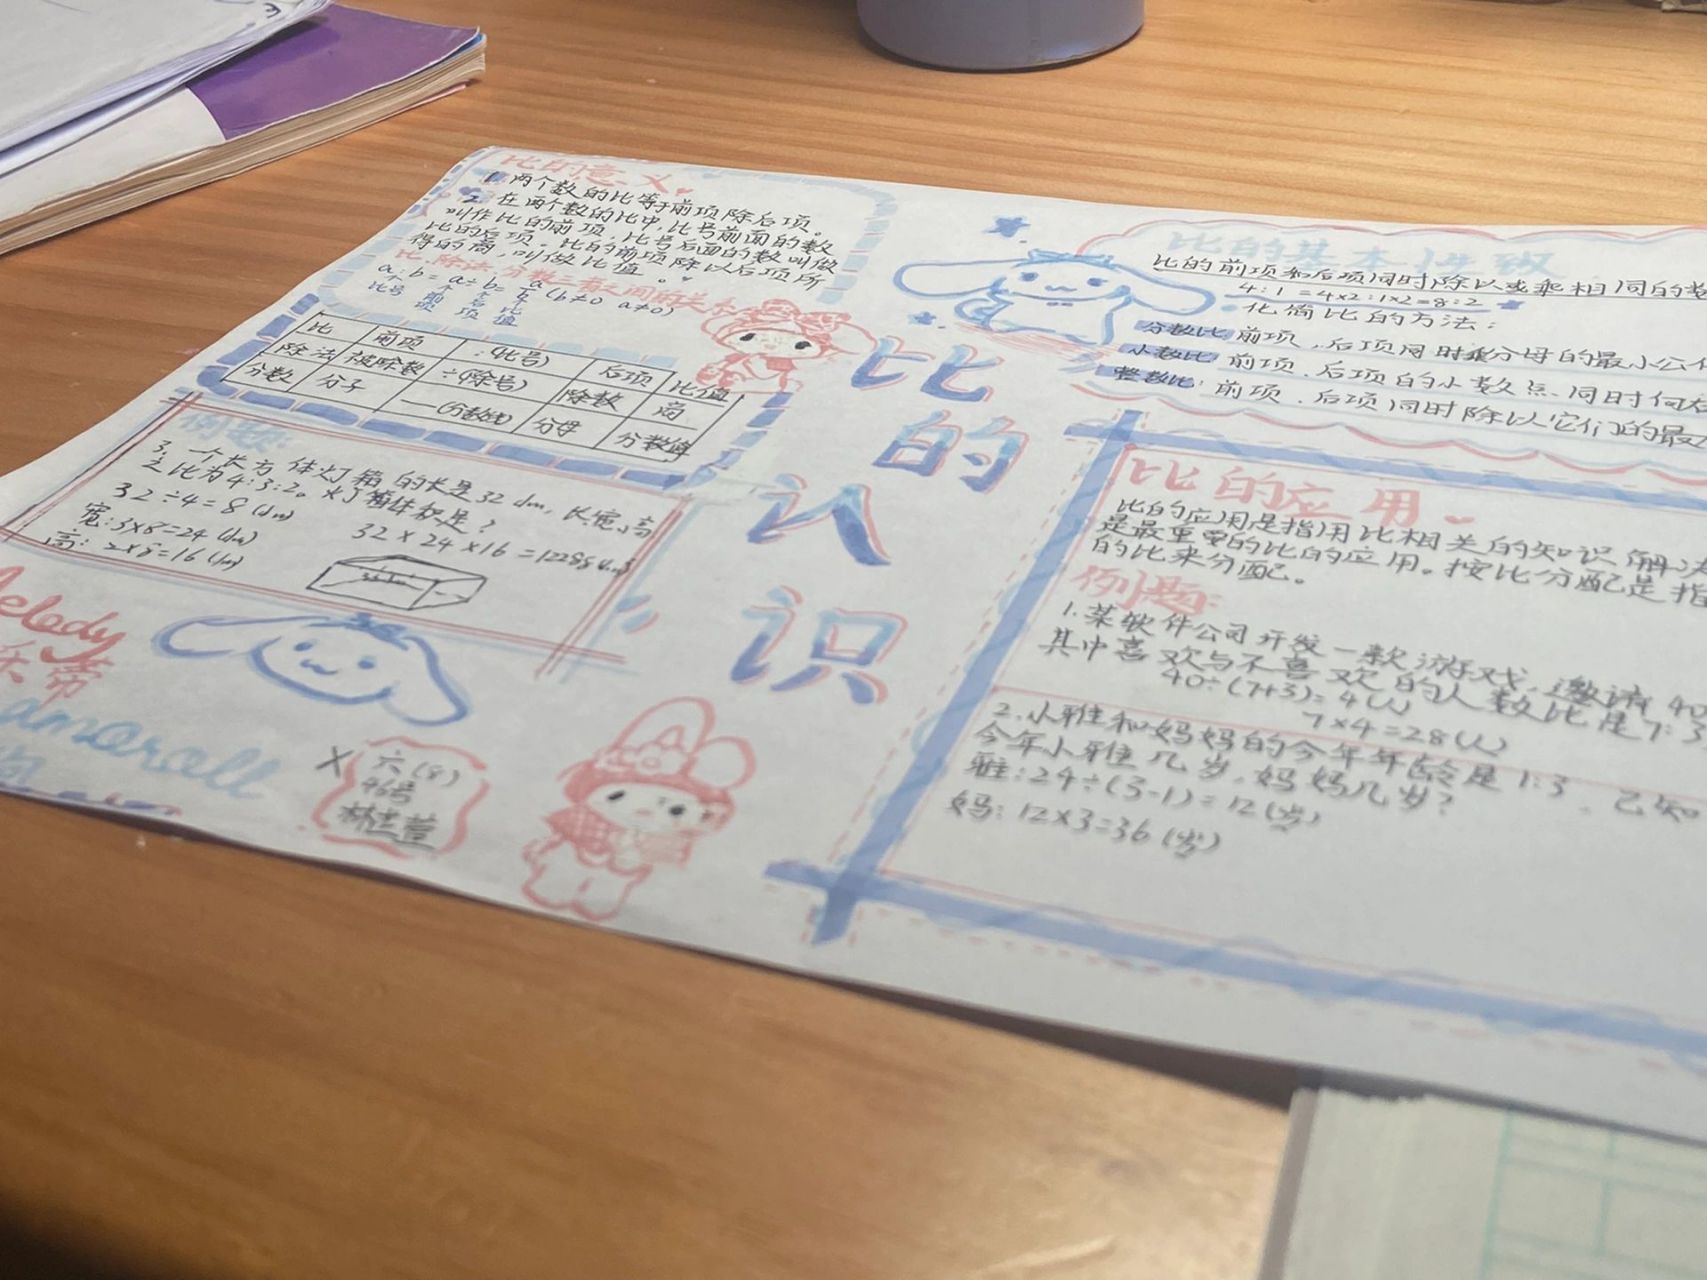 比的意义
1. 两个数的比等于前项除后项。
2. 在两个数的比中,比号前面的数
叫作比的前项,比号后面的数叫做
比的后项。比的前项除以后项所
得的商,叫做比值。
比、除法、分数三者之间的关系
a:b=a÷b=a/b(b≠0 a≠0)
比号 前项 后项 比值
比 前项 :(比号) 后项 比值
除法 被除数 ÷(除号) 除数 商
分数 分子 —(分数线) 分母 分数值
例题:
3. 一个长方体灯箱的长是32dm,长、宽、高
之比为4:3:2。灯箱体积是?
32÷4=8(dm)
宽:3×8=24(dm)
高:2×8=16(dm)
32×24×16=12288(dm³
Melody
乐蒂
六(8)
46号
比的认识
比的基本性质
比的前项和后项同时除以或乘相同的数
4:1=4×2:1×2=8:2
化简比的方法:
分数比:前项、后项同时乘分母的最小公
小数比:前项、后项的小数点同时向右
整数比:前项、后项同时除以它们的最
比的应用
比的应用是指用比相关的知识解决
是最重要的比的应用。按比分配是指
的比来分配。
例题:
1.某软件公司开发一款游戏,邀请40
其中喜欢与不喜欢的人数比是7:3
40÷(7+3)=4(人)
7×4=28(人)
2.小雅和妈妈的今年年龄是1:3。已知
今年小雅几岁,妈妈几岁?
雅:24÷(3-1)=12(岁)
妈:12×3=36(岁)